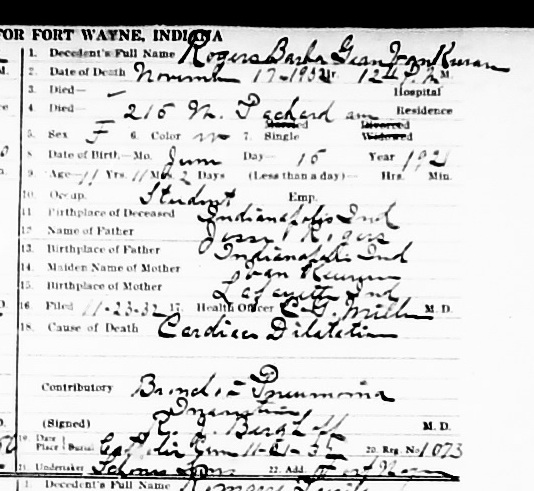 FOR FORT WAYNE, INDIANA
1. Decedent's Full Name Rogers Barba Jean
2. Date of Death November 17-1932 Hr. 12 M.
3. Died— Hospital
4. Died— 215 N. Packard av Residence
Married Divorced
5. Sex F 6. Color w 7. Single Widowed
8 Date of Birth—Mo. June Day— 15 Year 1921
9. Age— 11 Yrs. Mos. 2 Days (Less than a day)— Hrs. Min.
10. Occup. Student Emp.
11 Birthplace of Deceased Indianapolis Ind
12 Name of Father Jesse Rogers
13. Birthplace of Father Indianapolis Ind
14. Maiden Name of Mother
15. Birthplace of Mother Lafayette Ind
16. Filed 11-23-32 17. Health Officer C G. Miller M. D.
18. Cause of Death Cardiac Dilatation
Contributory Broncho Pneumonia
Inanition
(Signed) Berghoff M. D.
19. Date Place Burial 20. Reg. No 1073
21. Undertaker Sons 22. Add. Fort
1. Decedent's Full Name